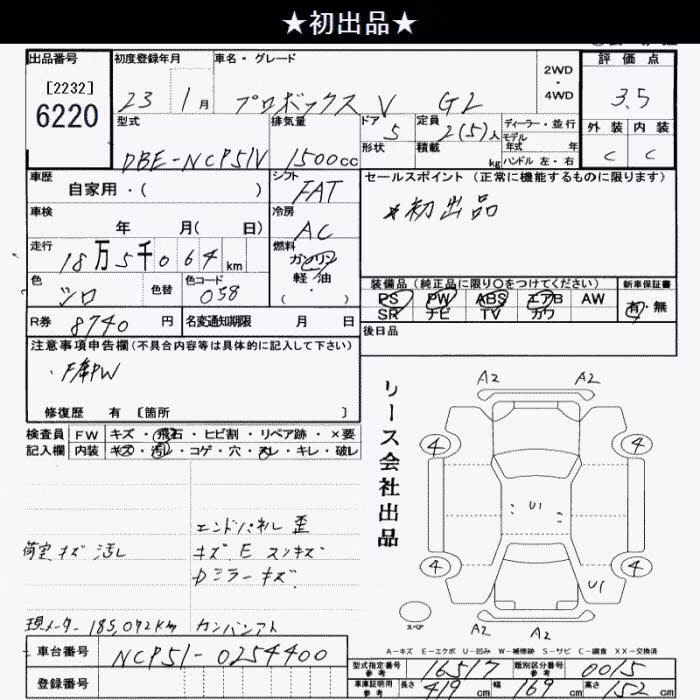 ★初出品★
出品番号 初度登録年月 車名・グレード 2WD・4WD 評価点
[2232]
6220
23 1月 プロボックス V GL 3.5
型式 排気量 ドア 5 定員 2(5)人 ディーラー・並行 外装 内装
形状 積載 kg モデル年式 年
DBE-NCP51V 1500cc ハンドル 左・右 C C
車歴 シフト セールスポイント (正常に機能するものに限ります)
自家用・( ) FAT
*初出品
車検 冷房
年 月( 日) AC
走行 燃料
18万5千064km ガソリン
軽・油
(・)
色 色替 色コード 装備品 (純正品に限り○をつけてください) 新車保証書
シロ 058 PS PW ABS エアB AW 有・無
SR ナビ TV カワ
R券 8740円 名変通知期限 月 日 後日品
注意事項申告欄 (不具合内容等は具体的に記入して下さい)
・F席PW
修復歴 有 [箇所 ]
検査員 FW キズ・飛石・ヒビ割・リペア跡・×要
記入欄 内装 キズ・汚レ・コゲ・穴・スレ・キレ・破レ
リース会社出品
A2 A2
4 4
U1
4 4
U1
A2 A2
スペア
エンドパネル 歪
荷室 キズ 汚レ キズ E スリキズ
Dミラーキズ
現メーター 185,092km カンバンアト
A-キズ E-エクボ U-凹み W-補修跡 S-サビ C-腐食 XX-交換済
車台番号 NCP51-0254400
型式指定番号 参考 16517 類別区分番号 参考 0015
登録番号
車庫証明用 参考 長さ 419cm 幅 169cm 高さ 152cm